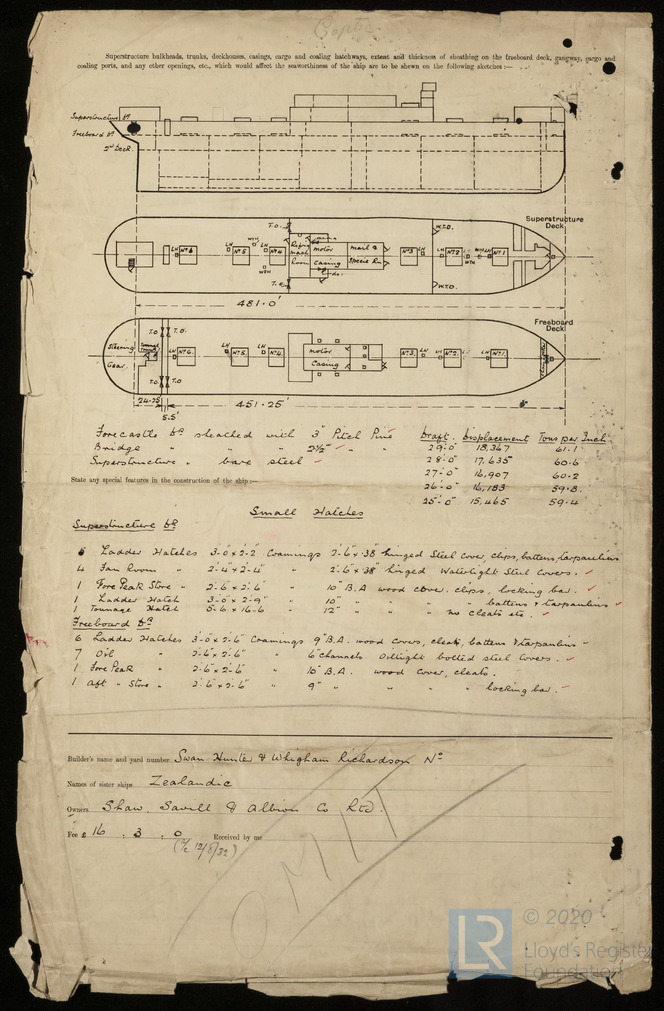 Coptic
Superstructure bulkheads, trunks, deckhouses, casings, cargo and coaling hatchways, extent and thickness of sheathing on the freeboard deck, gangway, cargo and
coaling ports, and any other openings, etc., which would affect the seaworthiness of the ship are to be shewn on the following sketches :—
Superstructure Dk
Freeboard Dk
2nd Deck
Superstructure
Deck
T.O. W.T.D.
LH No 6 LH No 5 LH No 4 Motor Casing Mail & Specie Rm No 3 LH LH No 2 LH No 1
T.O. W.T.D.
481·0'
Freeboard
Deck
T.O. T.O.
Steering Gear LH No 6. LH No 5. LH No 4. Motor Casing No 3. LH LH No 2. LH No 1.
T.O. T.O.
24·25' 451·25'
5.5'
Forecastle Dk sheathed with 3" Pitch Pine
Bridge " " " 2½" " "
Superstructure " bare steel
Draft. Displacement Tons per Inch.
29'-0" 18,367 61.1
28'-0" 17,635 60.6
27'-0" 16,907 60.2
26'-0" 16,183 59.8.
25'-0" 15,465 59.4
State any special features in the construction of the ship :—
Small Hatches
Superstructure Dk
Ladder Hatches 3'-0" x 2'-2" Coamings 2'-6" x .38" hinged Steel Cover, clips, battens, tarpaulins
4 Fan Room " 2'-4" x 2'-4" " 2'-6" x .38" hinged Watertight Steel Covers.
1 Fore Peak Store " 2'-6" x 2'-6" " 10" B.A. wood cover, clips, locking bar.
1 Ladder Hatch 3'-0" x 2'-9" " 10" " " battens & tarpaulins
1 Tonnage Hatch 5'-6 x 16-6 " 12" " no cleats etc.
Freeboard Dk
6 Ladder Hatches 3'-0" x 2'-6" Coamings 9" B.A. wood Covers, cleats, battens & tarpaulins
7 Oil " 2'-6" x 2'-6" " 6" channels Oiltight bolted steel Covers.
1 Fore Peak " 2'-6" x 2'-6" " 10" B.A. wood Cover, cleats.
1 Aft " Store " 2'-6" x 2'-6" " 9" " " " " locking bar.
Builder's name and yard number Swan Hunter & Whigham Richardson No
Names of sister ships Zealandic
Owners Shaw, Savill & Albion Co Ltd.
Fee £ 16 : 3 : 0 Received by me
12/8/32
OMIT
LR
© 2020
Lloyd's Register
Foundation